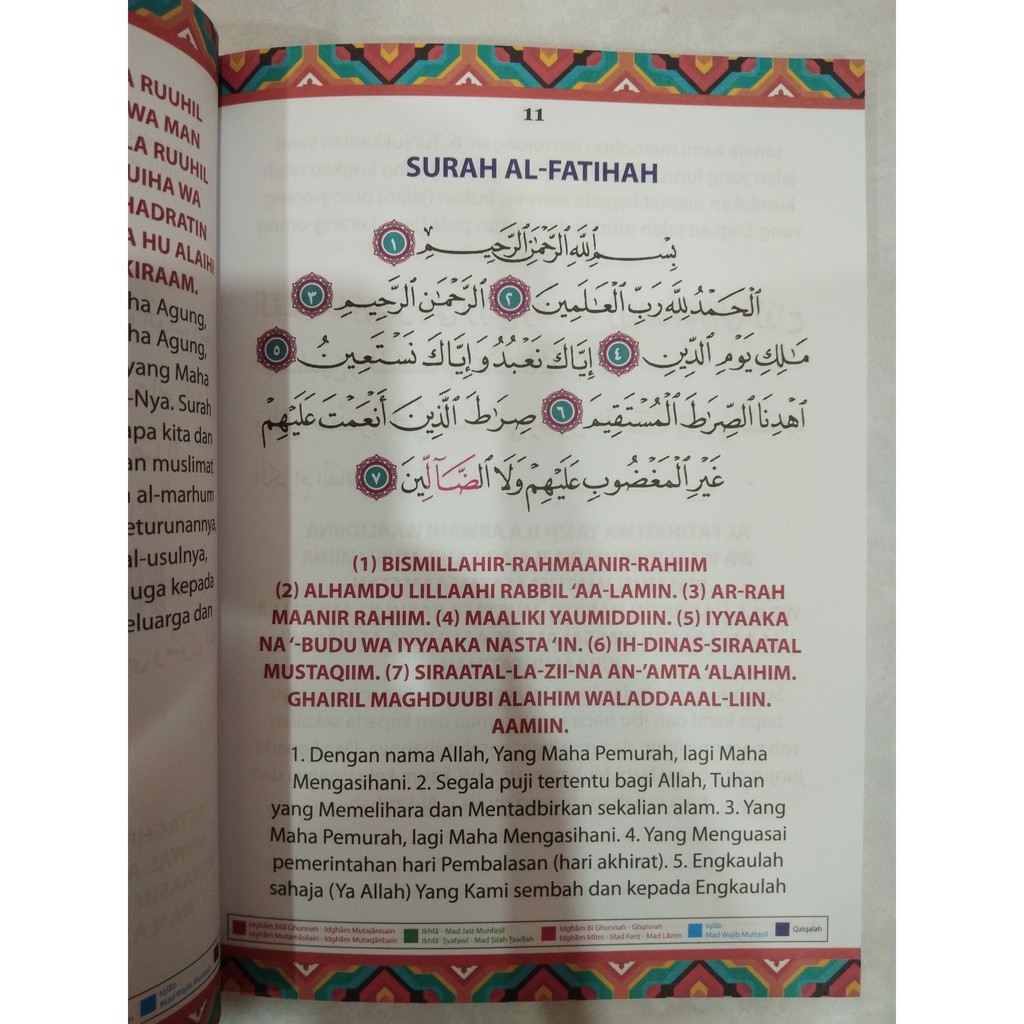 A RUUHIL
WA MAN
LA RUUHIL
UIHA WA
HADRATIN
A HU ALAIHI
KIRAAM.
ha Agung,
ha Agung,
yang Maha
-Nya. Surah
apa kita dan
an muslimat
al-marhum
eturunannya,
al-usulnya,
uga kepada
eluarga dan
Iqlāb
Mad Wajib Muttasil
11
SURAH AL-FATIHAH
بِسْمِ ٱللَّهِ ٱلرَّحْمَٰنِ ٱلرَّحِيمِ ١
ٱلْحَمْدُ لِلَّهِ رَبِّ ٱلْعَٰلَمِينَ ٢ ٱلرَّحْمَٰنِ ٱلرَّحِيمِ ٣
مَٰلِكِ يَوْمِ ٱلدِّينِ ٤ إِيَّاكَ نَعْبُدُ وَإِيَّاكَ نَسْتَعِينُ ٥
ٱهْدِنَا ٱلصِّرَٰطَ ٱلْمُسْتَقِيمَ ٦ صِرَٰطَ ٱلَّذِينَ أَنْعَمْتَ عَلَيْهِمْ
غَيْرِ ٱلْمَغْضُوبِ عَلَيْهِمْ وَلَا ٱلضَّآلِّينَ ٧
(1) BISMILLAHIR-RAHMAANIR-RAHIIM
(2) ALHAMDU LILLAAHI RABBIL ‘AA-LAMIN. (3) AR-RAH
MAANIR RAHIIM. (4) MAALIKI YAUMIDDIIN. (5) IYYAAKA
NA ‘-BUDU WA IYYAAKA NASTA ‘IN. (6) IH-DINAS-SIRAATAL
MUSTAQIIM. (7) SIRAATAL-LA-ZII-NA AN-’AMTA ‘ALAIHIM.
GHAIRIL MAGHDUUBI ALAIHIM WALADDAAAL-LIIN.
AAMIIN.
1. Dengan nama Allah, Yang Maha Pemurah, lagi Maha
Mengasihani. 2. Segala puji tertentu bagi Allah, Tuhan
yang Memelihara dan Mentadbirkan sekalian alam. 3. Yang
Maha Pemurah, lagi Maha Mengasihani. 4. Yang Menguasai
pemerintahan hari Pembalasan (hari akhirat). 5. Engkaulah
sahaja (Ya Allah) Yang Kami sembah dan kepada Engkaulah
Idghām Bilā Ghunnah - Idghām Mutajānisain
Idghām Mutamāsilain - Idghām Mutaqāribain
Ikhfā' - Mad Jaiz Munfaṣil
Ikhfā' Syafawī - Mad Ṣilah Ṭawīlah
Idghām Bi Ghunnah - Ghunnah
Idghām Mīmi - Mad Farq - Mad Lāzim
Iqlāb
Mad Wajib Muttasil
Qalqalah